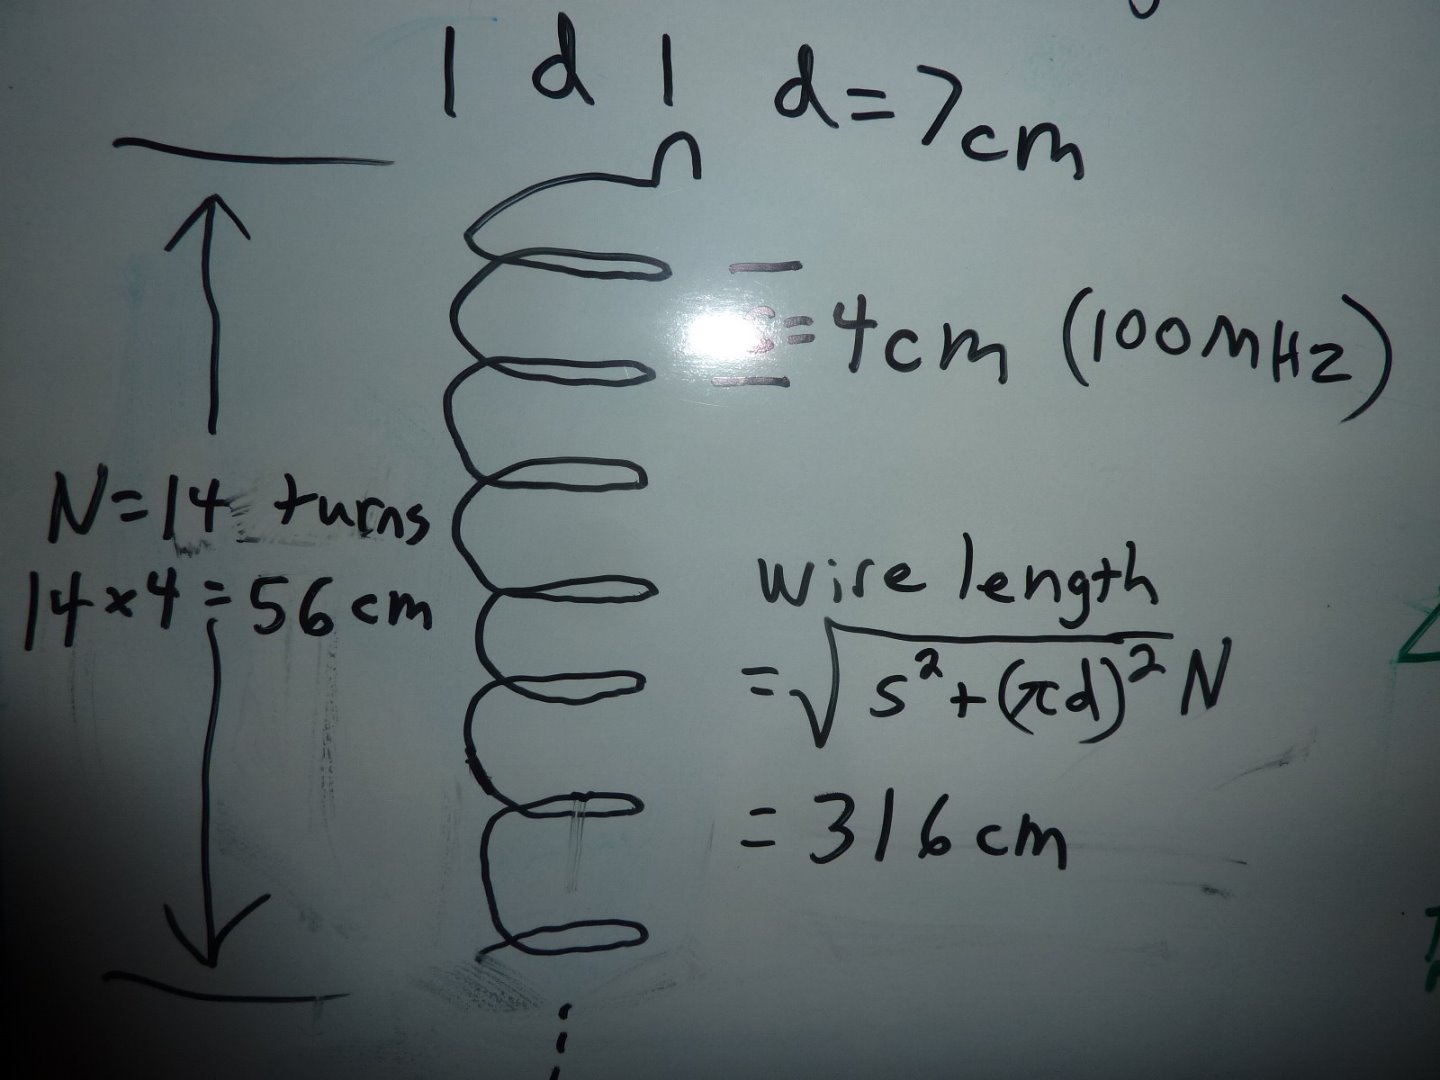 | d | d = 7cm
s = 4cm (100MHz)
N = 14 turns
14 x 4 = 56 cm
wire length
= √s² + (πd)² N
= 316 cm